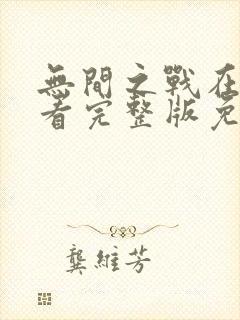 無間之戰在
看完整版免
龔維芳